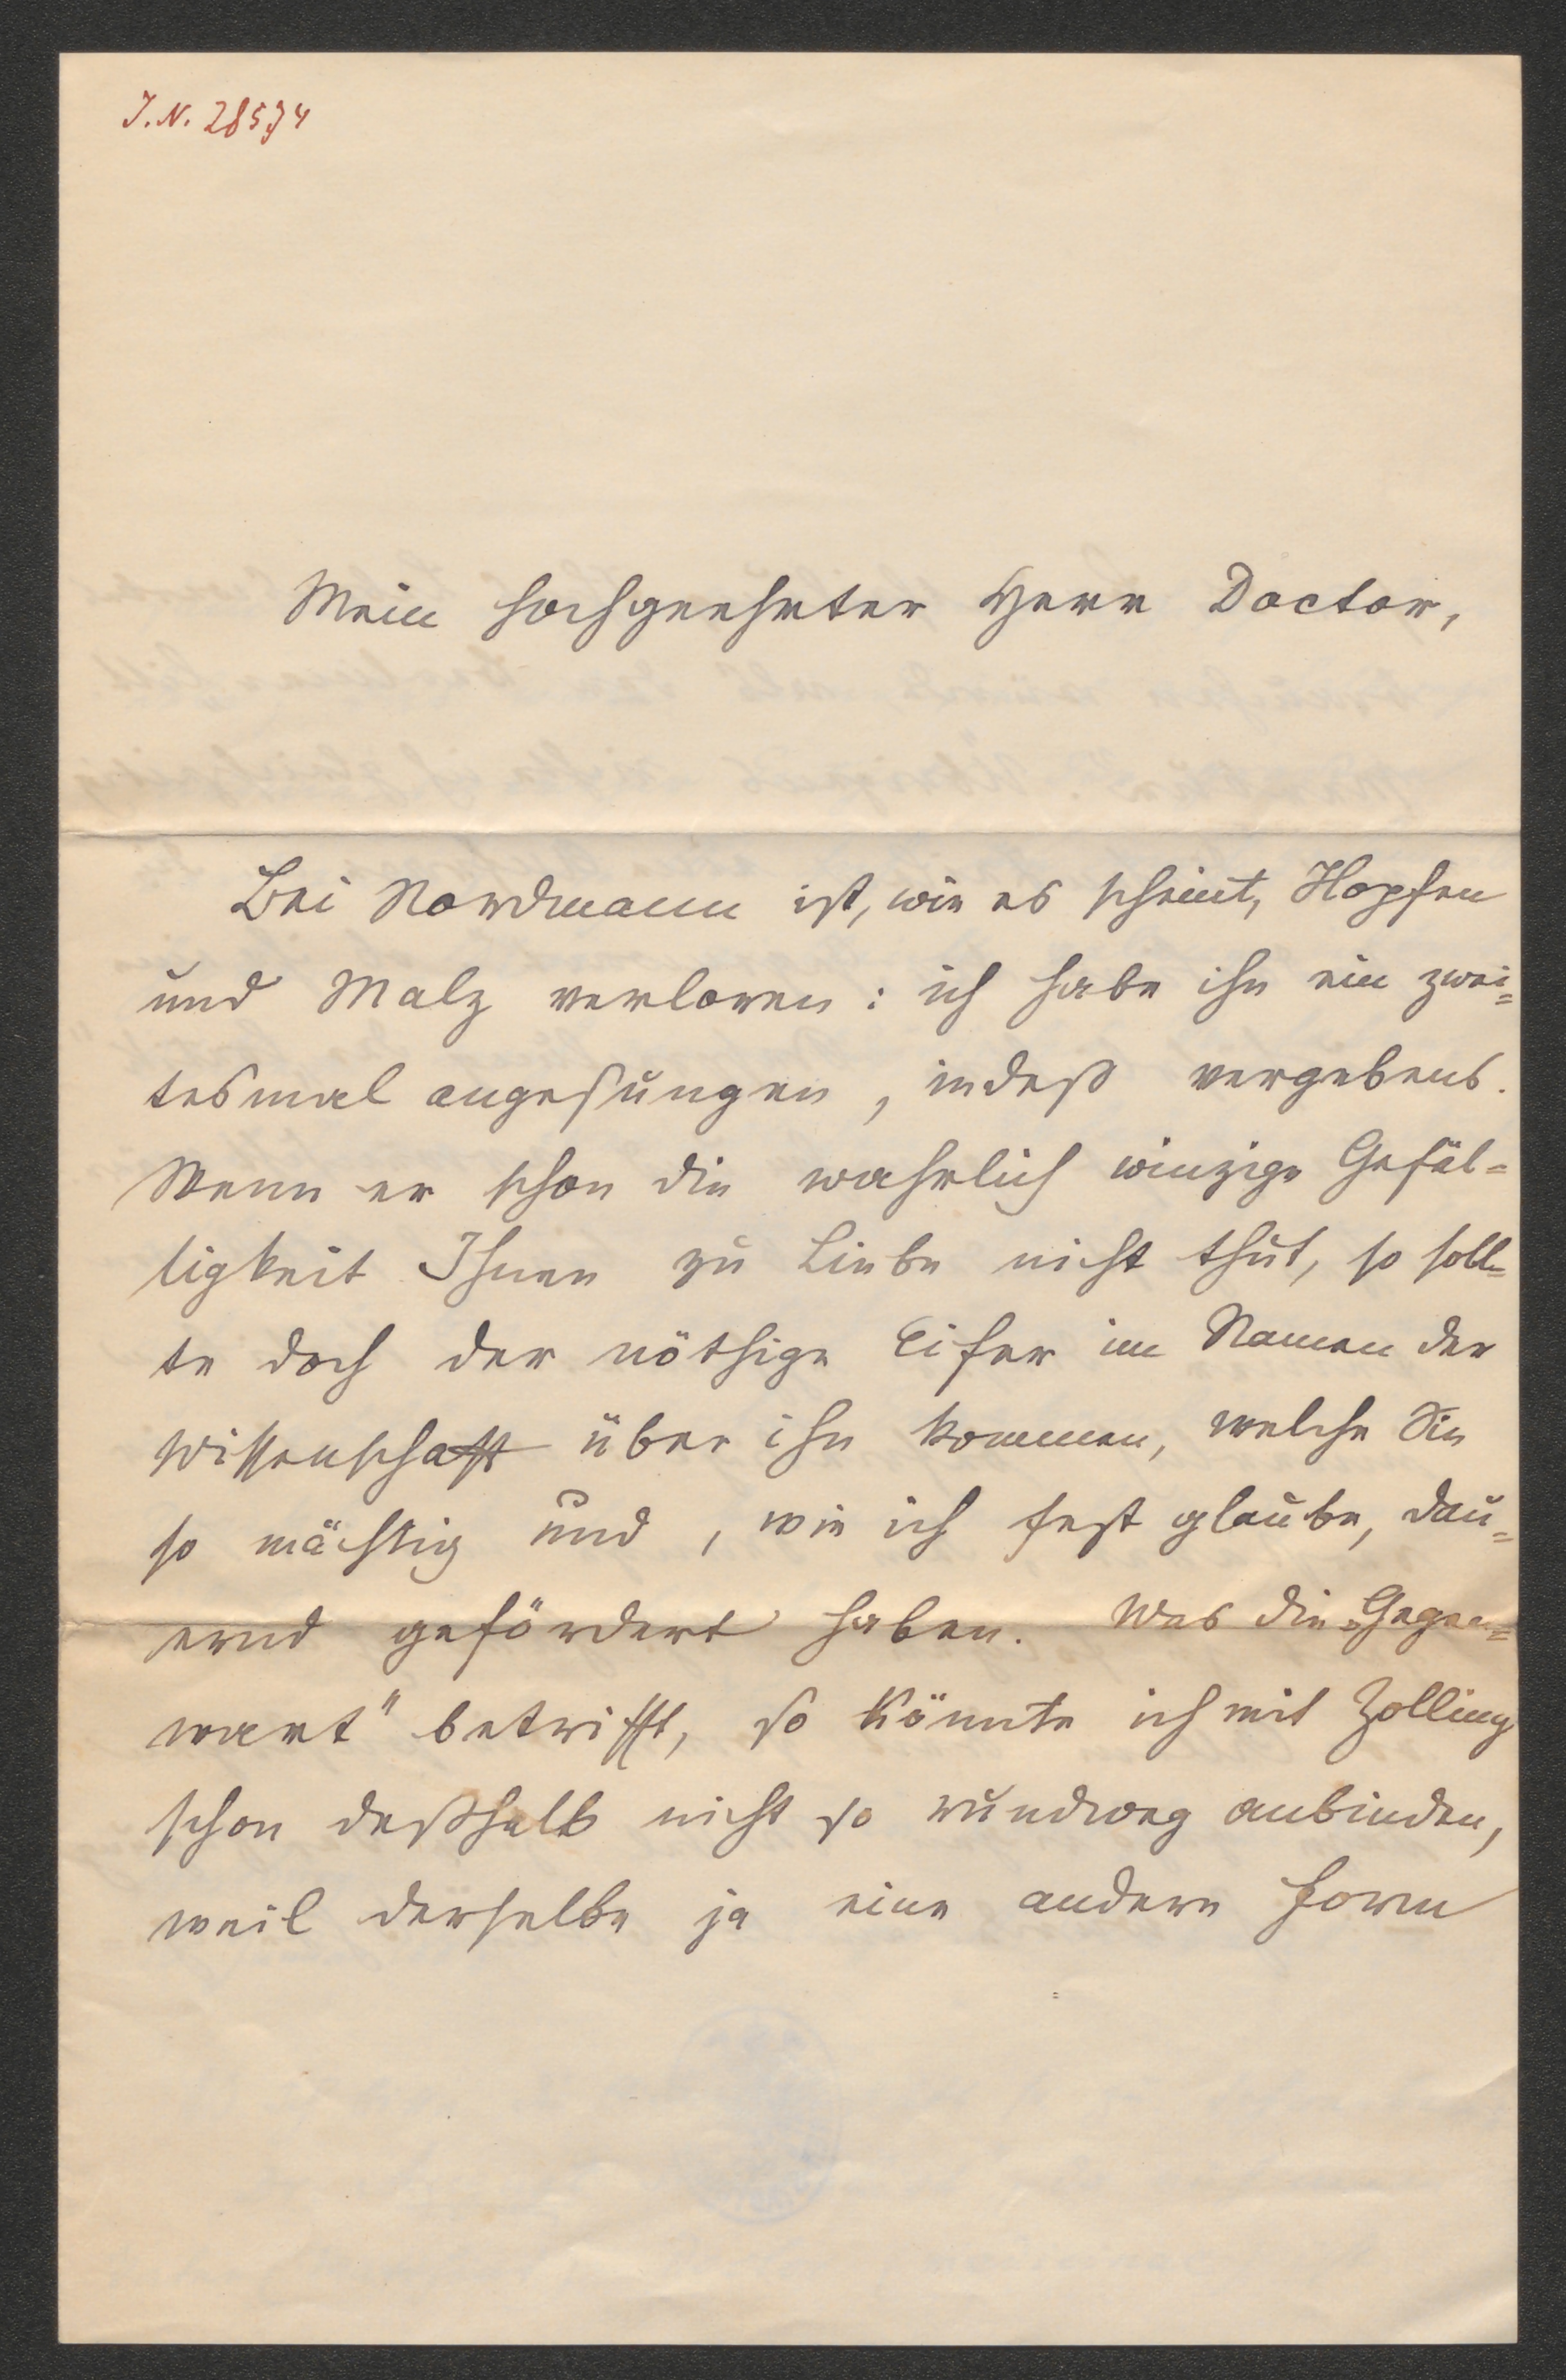 J.N. 28574
Mein hochgeehrter Herr Doctor,
Bei Nordmann ist, wie es scheint, Hopfen
und Malz verloren: ich habe ihn ein zwei=
tesmal angesungen, indeß vergebens.
Wenn er schon die wahrlich winzige Gefäl=
ligkeit Ihnen zu Liebe nicht thut, so soll=
te doch der nöthige Eifer im Namen der
Wissenschaft über ihn kommen, welche Sie
so mächtig und, wie ich fest glaube, dau=
ernd gefördert haben. Was die „Gegen=
wart" betrifft, so könnte ich mit Zolling
schon deßhalb nicht so rundweg anbinden,
weil derselbe ja eine andere Form